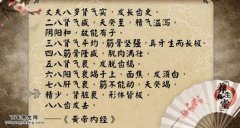 丈夫八岁肾气实，发长齿更。
二八肾气盛，天癸至，精气溢泻
阴阳和，故能有子。
三八肾气平均，筋骨坚强，真牙生而长极
四八筋骨隆盛，肌肉满壮。
五八肾气衰，发堕齿槁。
六八阳气衰竭于上，面焦，发须白
七八肝气衰，筋不能动，天癸竭
精少，肾脏衰，形体皆极
八八齿发去。
《黄帝内经》